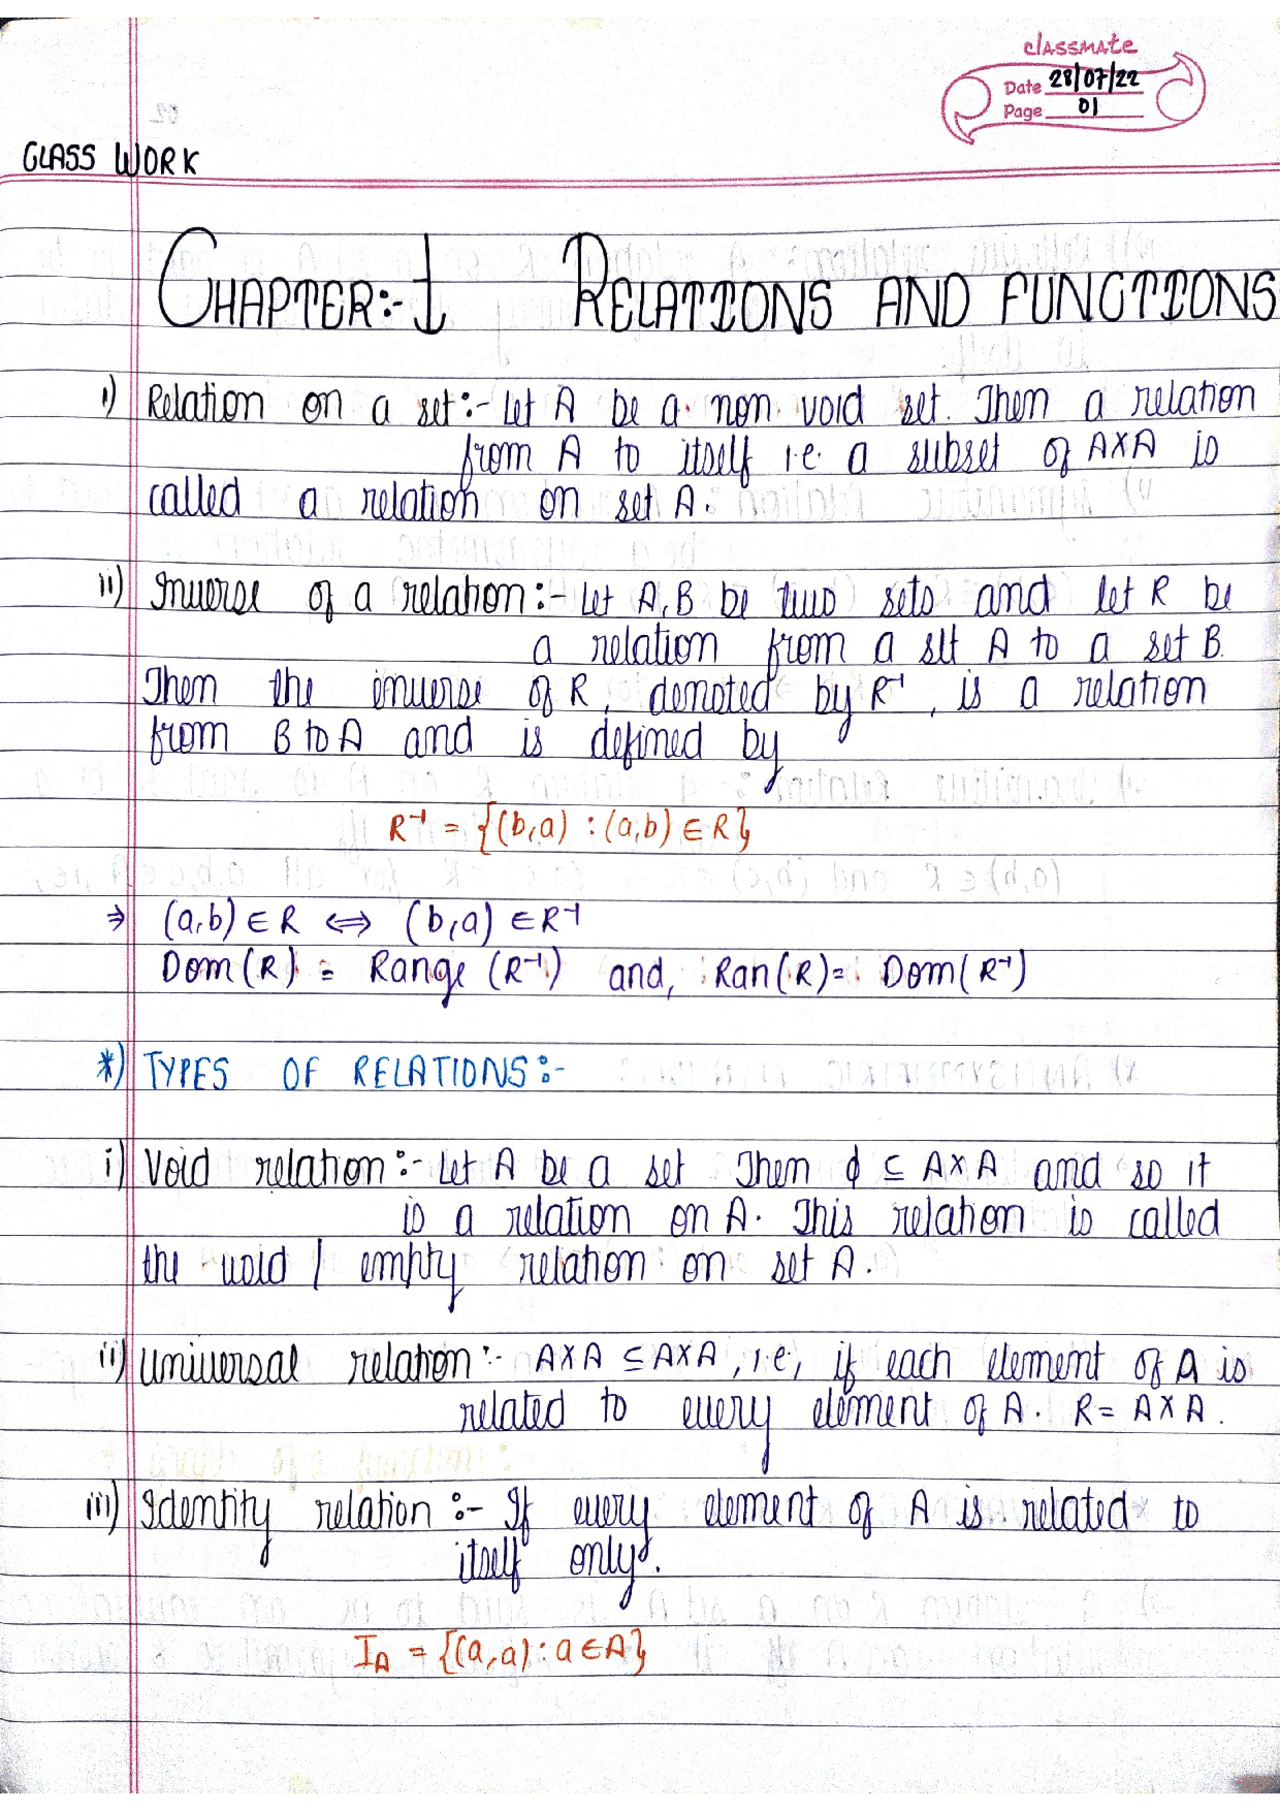 classmate
Date 28/07/22
Page 01
CLASS WORK
CHAPTER:-1 RELATIONS AND FUNCTIONS
i) Relation on a set:- Let A be a non void set. Then a relation
from A to itself i.e. a subset of A×A is
called a relation on set A.
ii) Inverse of a relation:- Let A,B be two sets and let R be
a relation from a set A to a set B.
Then the inverse of R, denoted by R⁻¹, is a relation
from B to A and is defined by
R⁻¹ = {(b,a) : (a,b) ∈ R}
⇒ (a,b) ∈ R ⟺ (b,a) ∈ R⁻¹
Dom(R) = Range (R⁻¹) and, Ran(R) = Dom(R⁻¹)
*) TYPES OF RELATIONS:-
i) Void relation:- Let A be a set Then ϕ ⊆ A×A and so it
is a relation on A. This relation is called
the void / empty relation on set A.
ii) Universal relation:- A×A ⊆ A×A, i.e, if each element of A is
related to every element of A. R = A×A.
iii) Identity relation :- If every element of A is related to
itself only.
I_A = {(a,a) : a ∈ A}